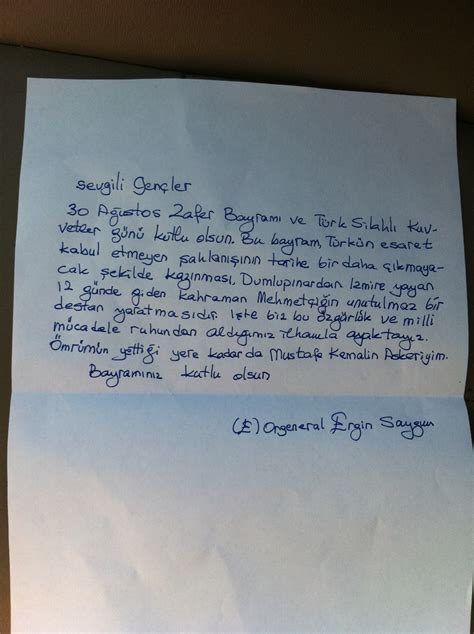 Sevgili Gençler
30 Ağustos Zafer Bayramı ve Türk Silahlı Kuv-
vetler günü kutlu olsun. Bu bayram, Türkün esaret
kabul etmeyen şahlanışının tarihe bir daha çıkmaya-
cak şekilde kazınması, Dumlupınardan İzmire yayan
12 günde giden kahraman Mehmetçiğin unutulmaz bir
destan yaratmasıdır. İşte biz bu özgürlük ve milli
mücadele ruhundan aldığımız ilhamla ayaktayız.
Ömrümün yettiği yere kadar da Mustafa Kemalin Askeriyim.
Bayramınız kutlu olsun
(E) Orgeneral Ergin Saygun